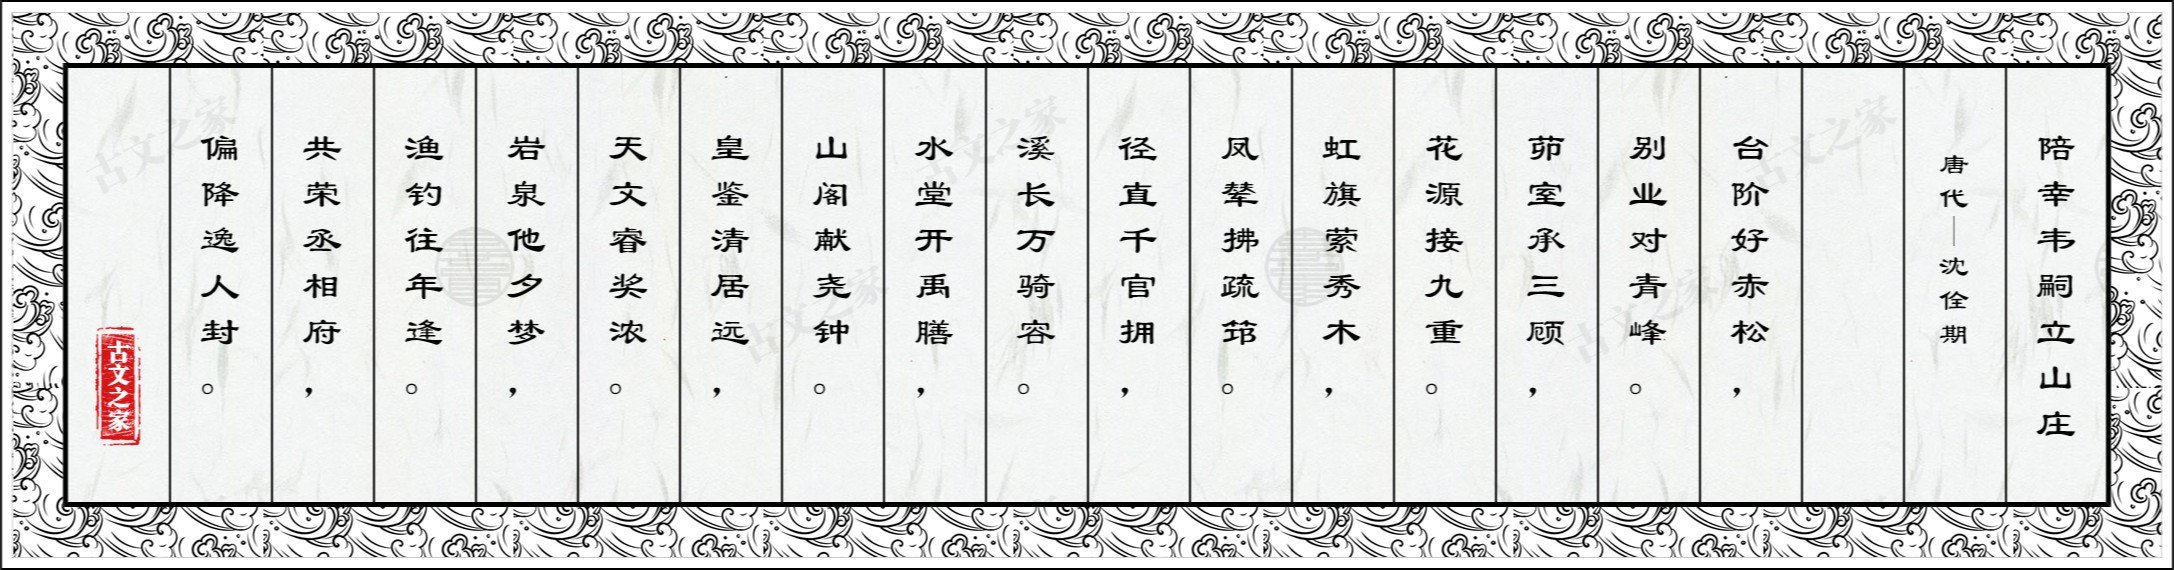 陪幸韦嗣立山庄
唐代—沈佺期
台阶好赤松，
别业对青峰。
茆室承三顾，
花源接九重。
虹旗萦秀木，
凤辇拂疏筇。
径直千官拥，
溪长万骑容。
水堂开禹膳，
山阁献尧钟。
皇鉴清居远，
天文睿奖浓。
岩泉他夕梦，
渔钓往年逢。
共荣丞相府，
偏降逸人封。
古文之家
古文之家
古文之家
古文之家
古文之家
古文之家